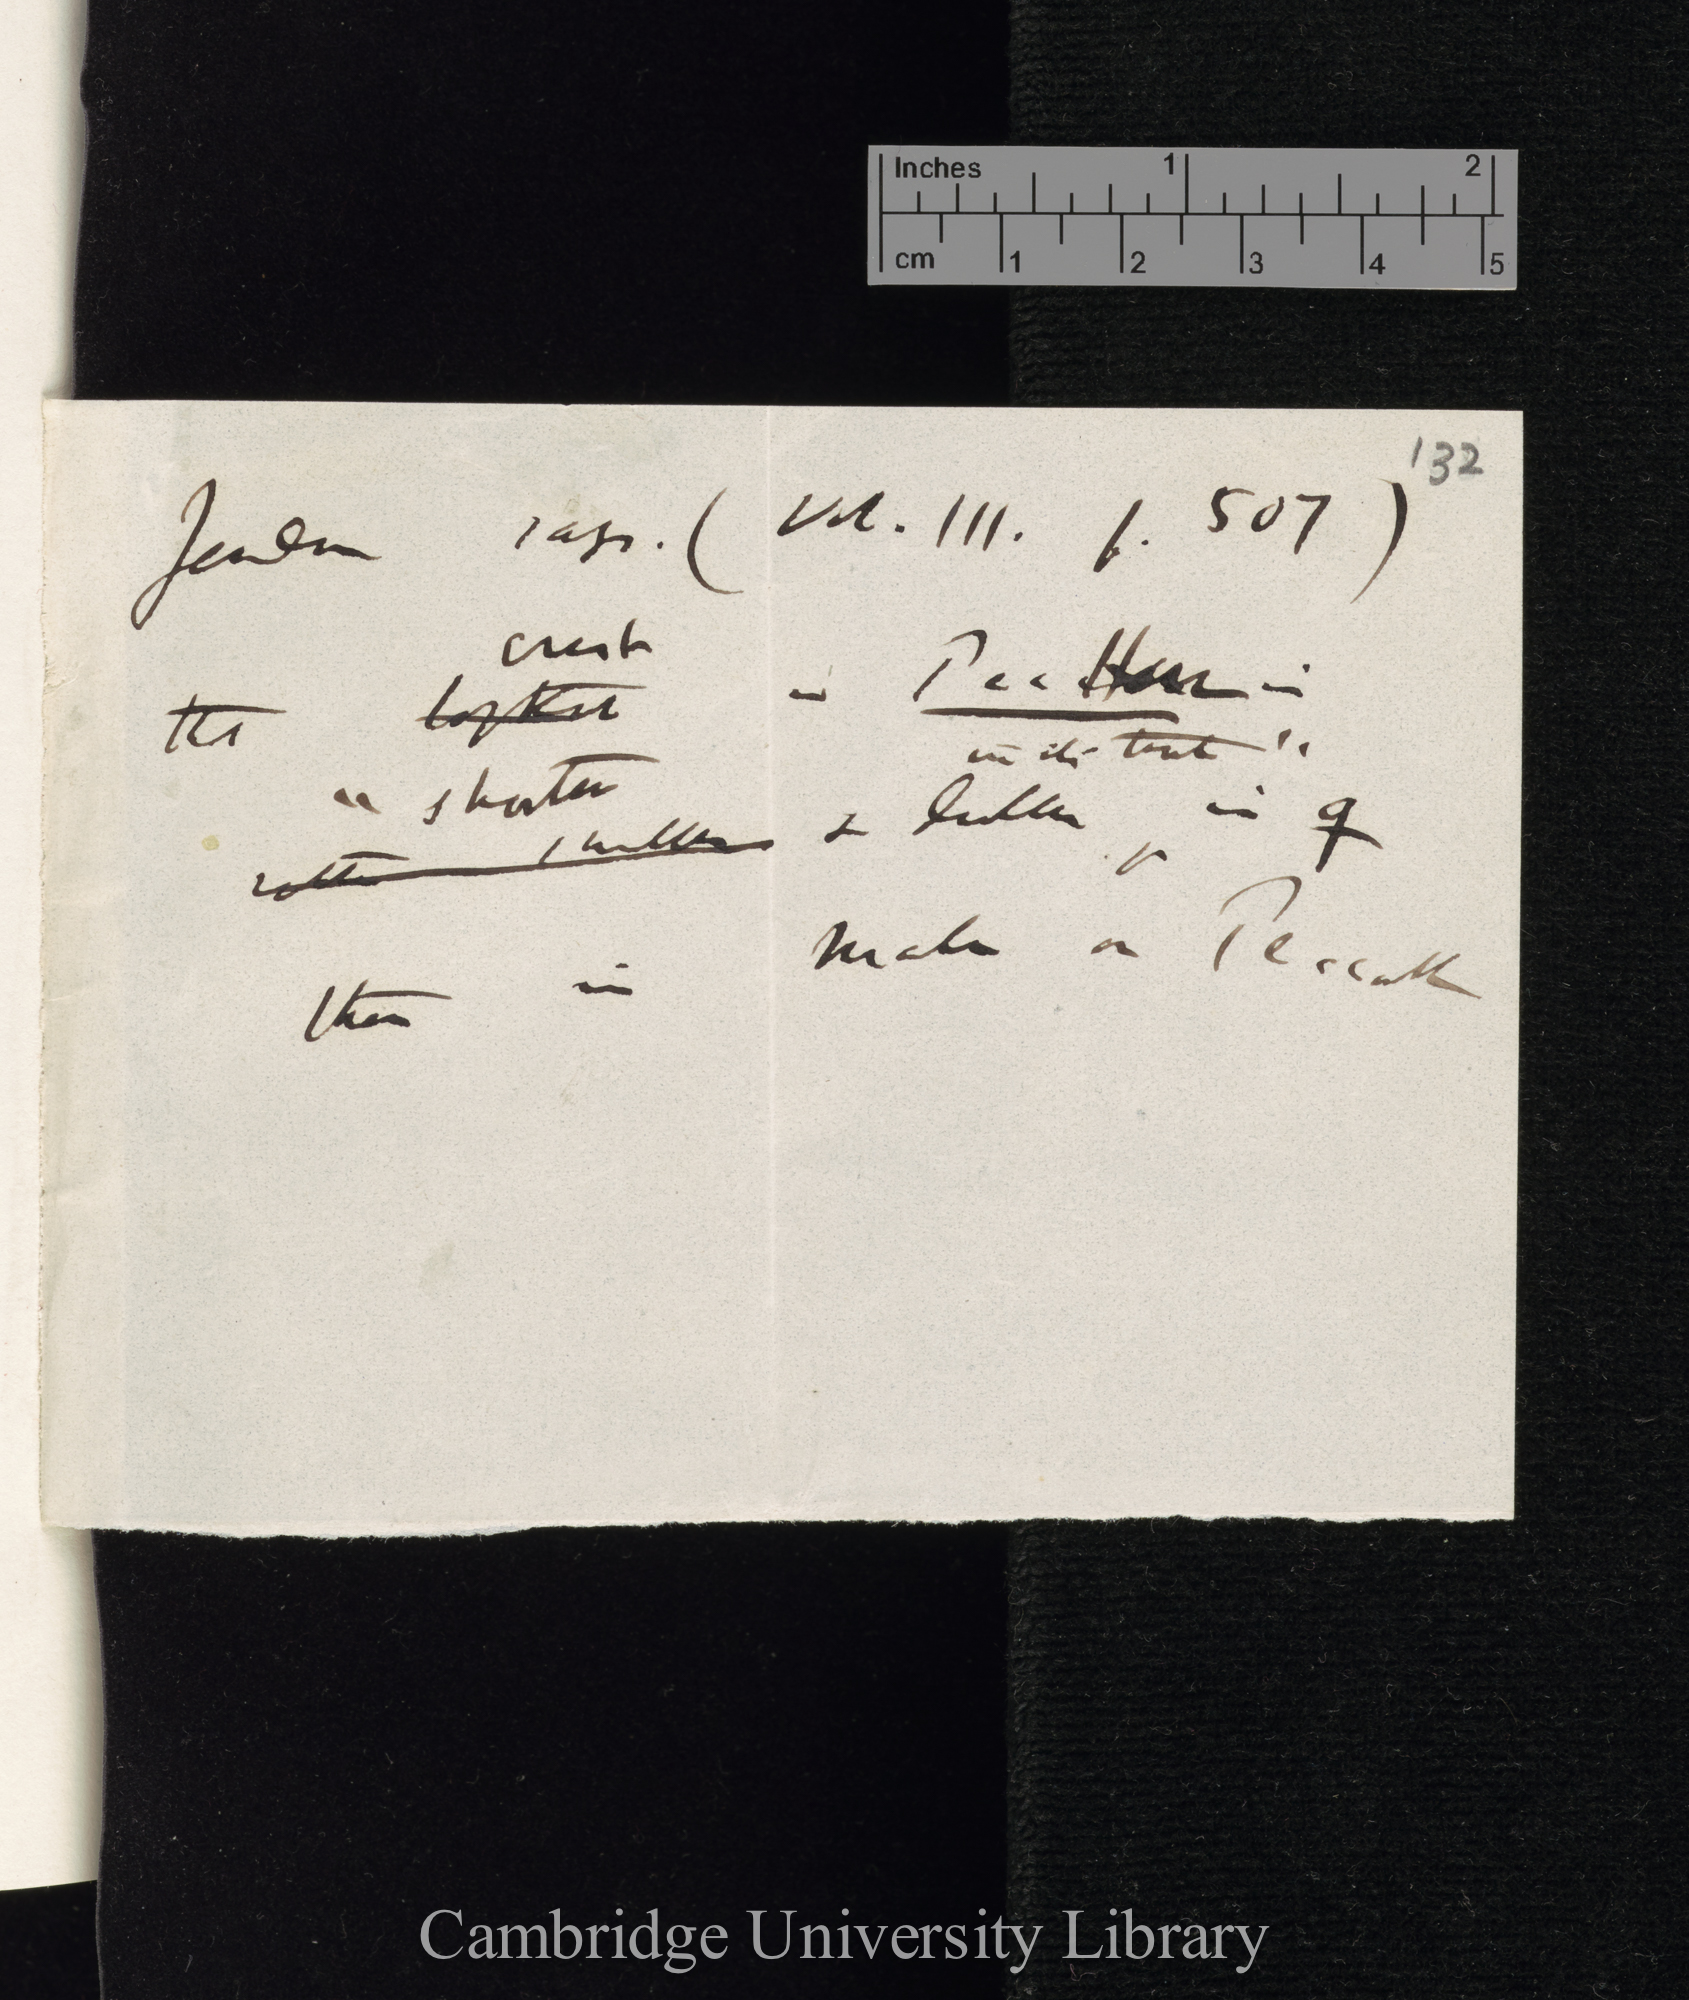 Inches 1 2
cm 1 2 3 4 5
132
Jerdon says. (Vol. III. p. 507)
crest
the topknot in Pea Hen is
indistinct"
"shorter
rather smaller & duller in ♀
than in male or Peacock
Cambridge University Library